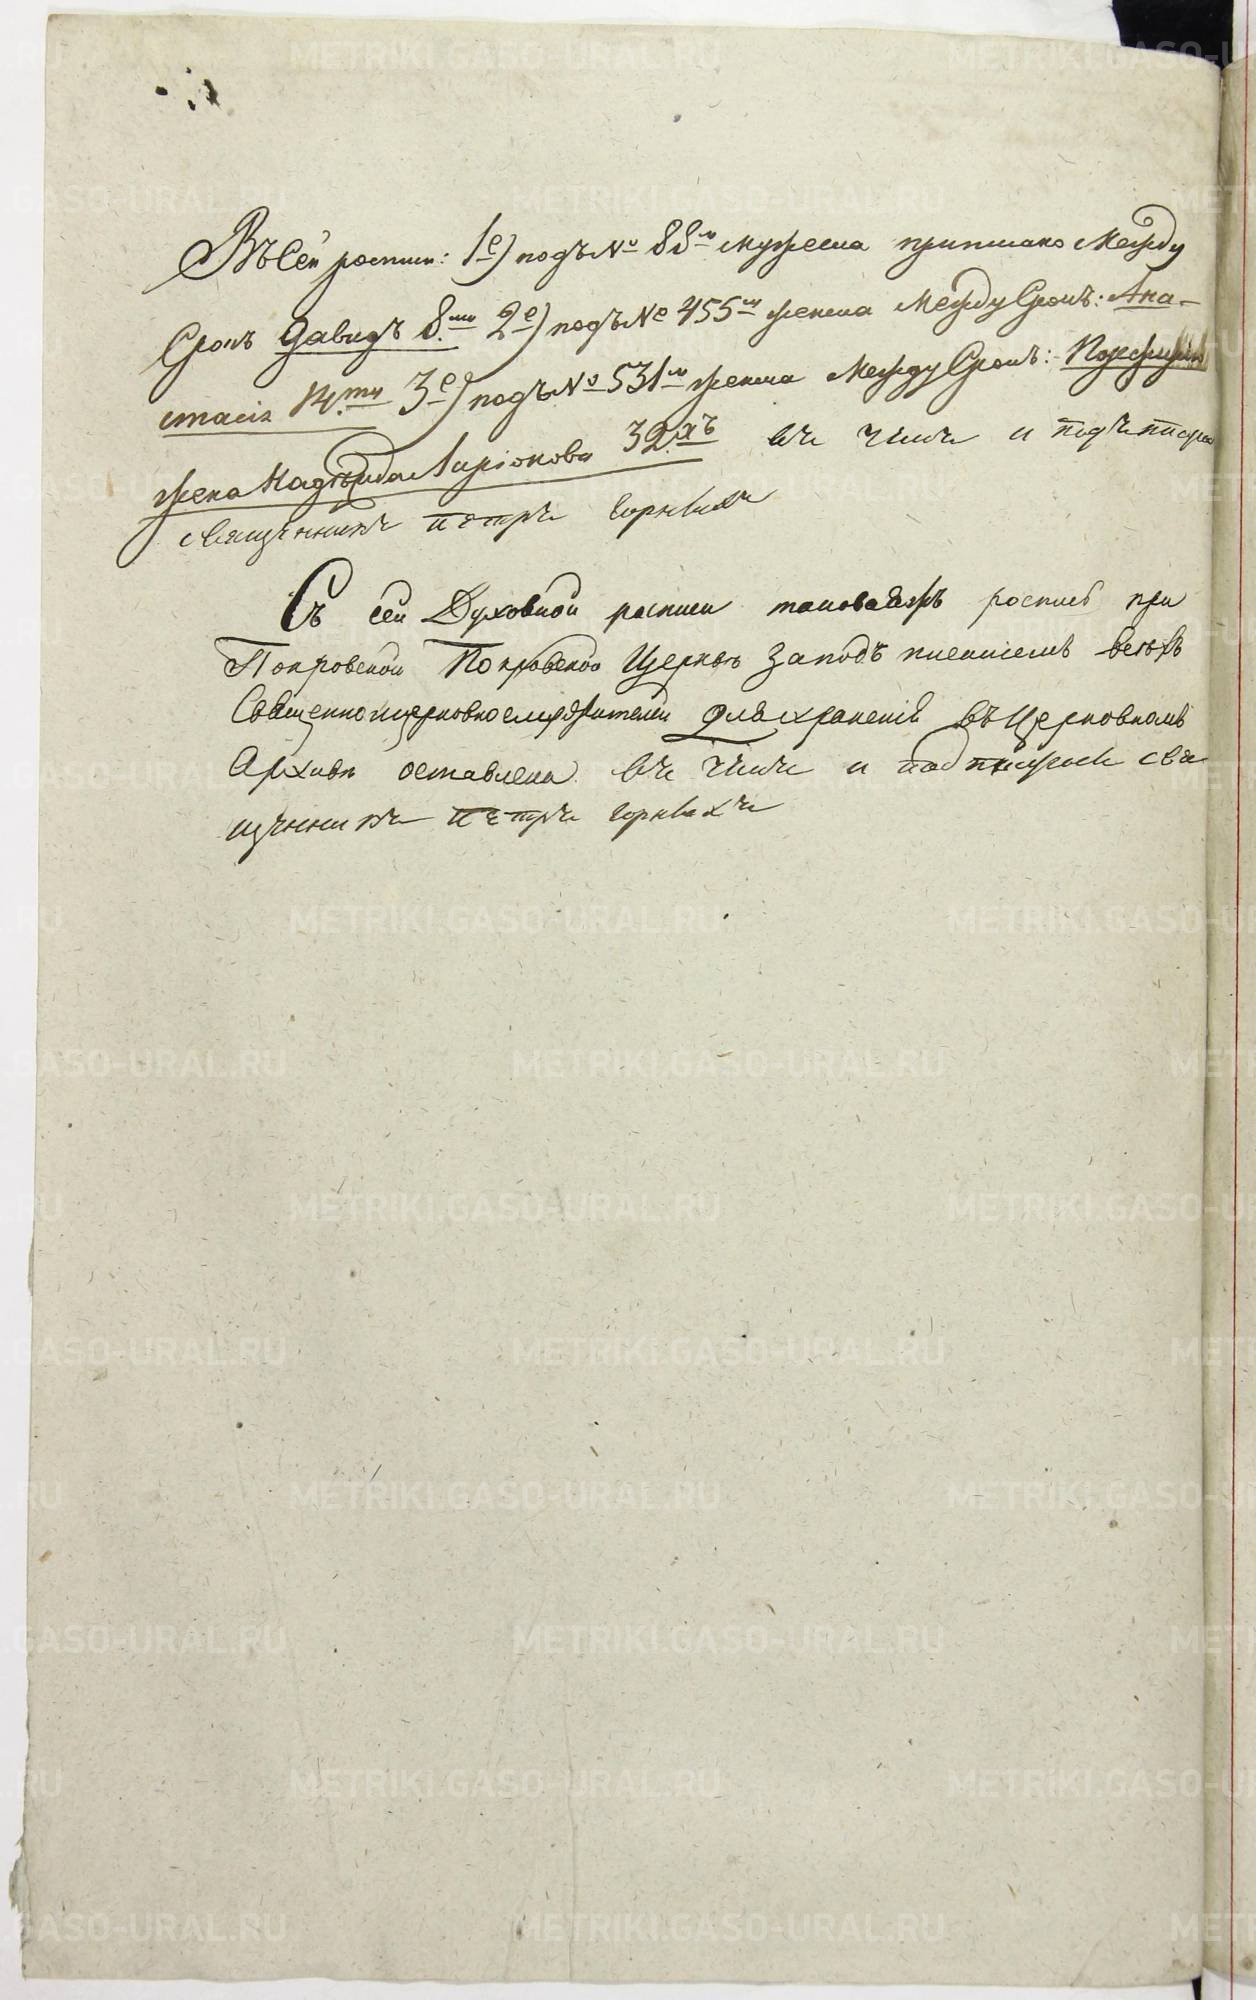 Въ сей росписи: 1е) подъ № 88м мужеска приписано между
строкъ Давидъ 8ми 2е) подъ № 455м женска между строкъ: Ана-
стасія 14ти 3е) подъ № 531м женска между строкъ:
жена Надѣжда Ларіонова 32хъ въ чемъ и подъписуюсь
священникъ петръ
Съ сей Духовной росписи таковаяжъ роспись при
Покровской Покровской Церквѣ за подъписаніемъ всѣхъ
Священноицерковнослужителей для храненія въ Церковномъ
Архивѣ оставлена въ чемъ и подписуюсь свя
щенникъ петръ
METRIKI.GASO-URAL.RU